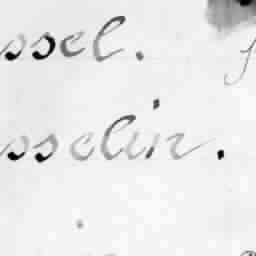 ssel.
sselin.